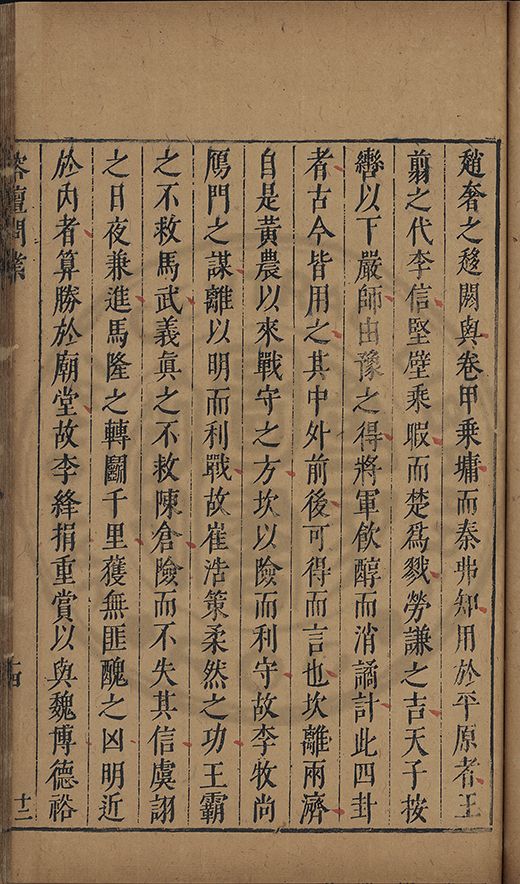 趙奢之趍閼與卷甲乘墉而秦弗知用於平原者王
翦之代李信堅壁乘暇而楚爲戮勞謙之吉天子按
轡以下嚴師由豫之得將軍飲醇而消譎計此四卦
者古今皆用之其中外前後可得而言也坎離兩濟
自是黃農以來戰守之方坎以險而利守故李牧尚
鴈門之謀離以明而利戰故崔浩策柔然之功王霸
之不救馬武義真之不救陳倉險而不失其信虞詡
之日夜兼進馬隆之轉鬭千里獲無匪醜之凶明近
於內者算勝於廟堂故李絳捐重賞以與魏博德裕
榕壇問業
十二